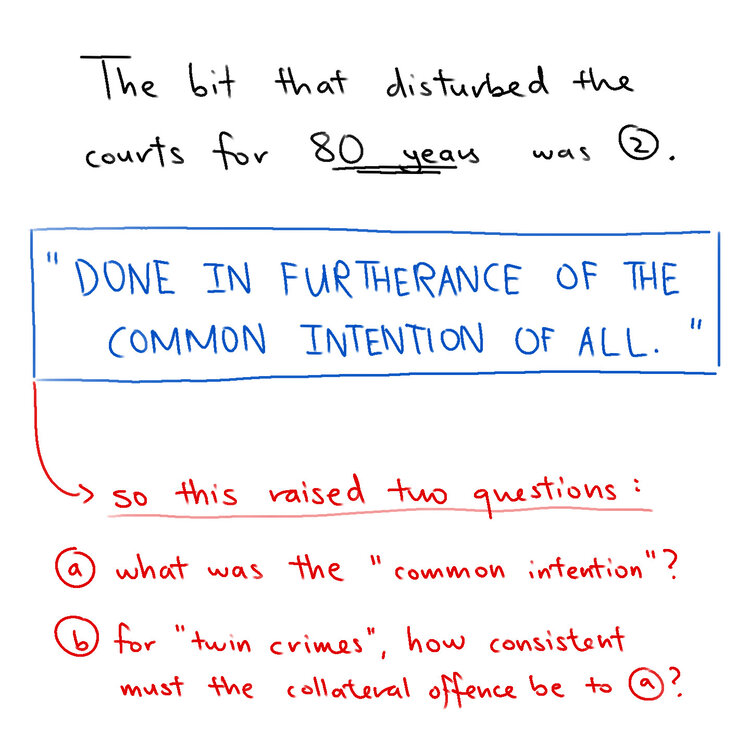 The bit that disturbed the
courts for 80 years was ②.
"DONE IN FURTHERANCE OF THE
COMMON INTENTION OF ALL."
so this raised two questions:
ⓐ what was the "common intention"?
ⓑ for "twin crimes", how consistent
must the collateral offence be to ⓐ?